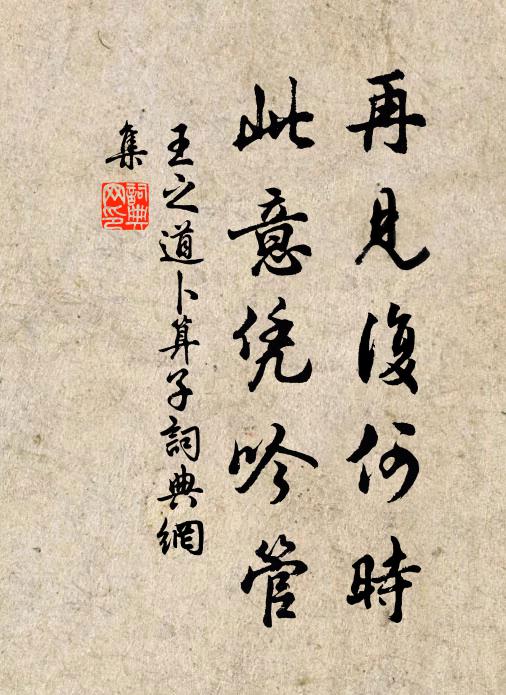 再見復何時
此意凭吟管
王之道卜算子詞典網
集
詞典網印